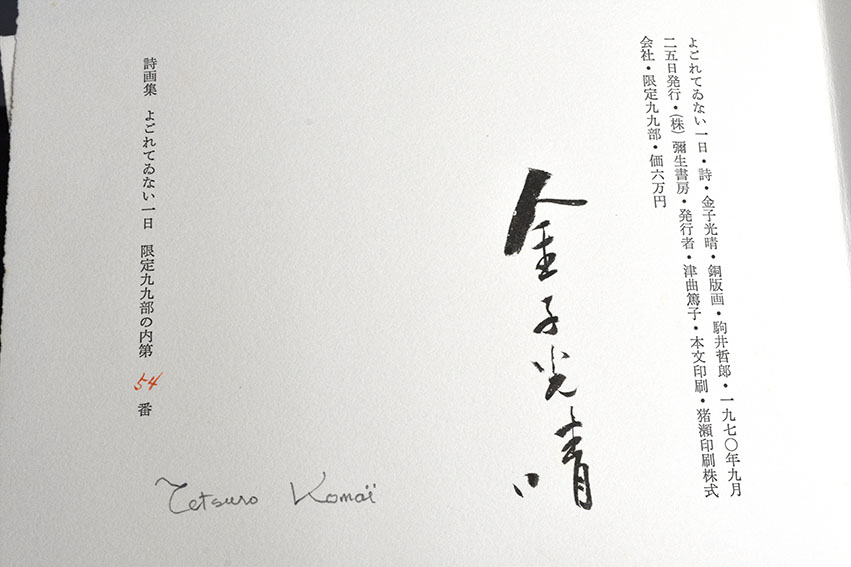 よごれてゐない一日・詩・金子光晴・銅版画・駒井哲郎・一九七〇年九月
二五日発行・(株)彌生書房・発行者・津曲篤子・本文印刷・猪瀬印刷株式
会社・限定九九部・価六万円
金子光晴
詩画集 よごれてゐない一日 限定九九部の内第 54 番
Tetsuro Komaï